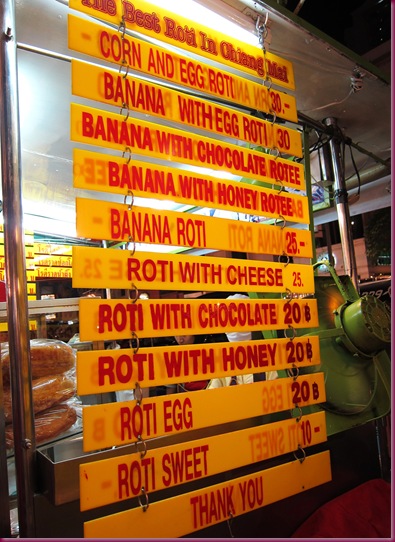 The Best Roti In Chiang Mai
- CORN AND EGG ROTI 30.-
BANANA WITH EGG ROTI 30
BANANA WITH CHOCOLATE ROTEE
BANANA WITH HONEY ROTEE
- BANANA ROTI 25.-
ROTI WITH CHEESE 25.
ROTI WITH CHOCOLATE 20฿
ROTI WITH HONEY 20฿
ROTI EGG 20฿
ROTI SWEET 10-
THANK YOU